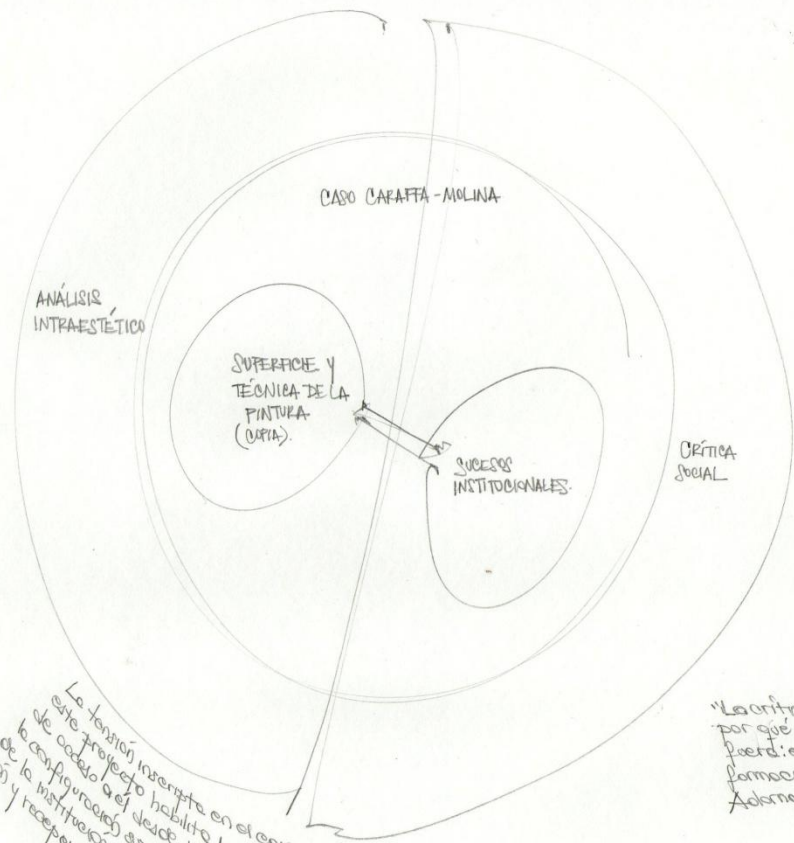 CASO CARAFFA-MOLINA
ANÁLISIS
INTRAESTÉTICO
SUPERFICIE Y
TÉCNICA DE LA
PINTURA
(COPIA).
SUCESOS
INSTITUCIONALES.
CRÍTICA
SOCIAL
La tensión inscripta en el
este proyecto habilita
de acceso a él desde
la configuración
de la institución
y
"La crítica
por qué